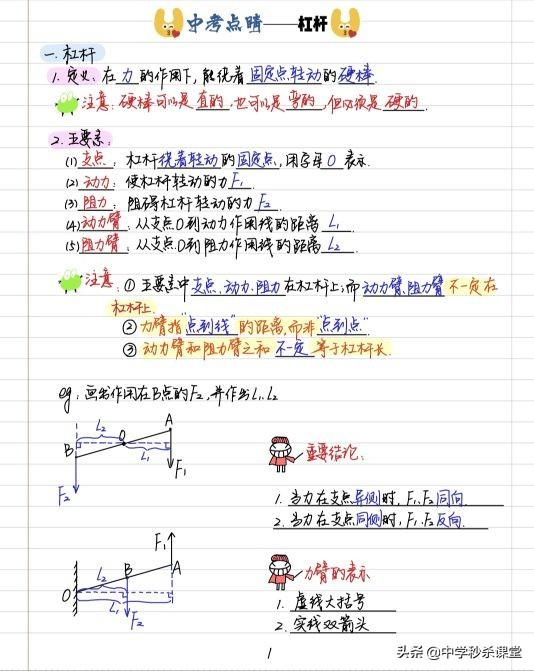 中考点睛——杠杆
一.杠杆
1.定义:在力的作用下,能绕着固定点转动的硬棒.
注意:硬棒可以是直的,也可以是弯的,但必须是硬的.
2.五要素:
(1)支点:杠杆绕着转动的固定点,用字母O表示.
(2)动力:使杠杆转动的力F₁.
(3)阻力:阻碍杠杆转动的力F₂.
(4)动力臂:从支点O到动力作用线的距离L₁.
(5)阻力臂:从支点O到阻力作用线的距离L₂.
注意:①五要素中支点、动力、阻力在杠杆上;而动力臂、阻力臂不一定在
杠杆上.
②力臂指"点到线"的距离,而非"点到点".
③动力臂和阻力臂之和不一定等于杠杆长.
eg:画出作用在B点的F₂,并作出L₁、L₂
A
L₂
O
B
L₁
F₁
F₂
重要结论:
1.当力在支点异侧时,F₁、F₂同向.
2.当力在支点同侧时,F₁、F₂反向.
F₁
L₂
B
A
O
L₁
F₂
力臂的表示
1.虚线大括号
2.实线双箭头
1
头条@中学秒杀课堂